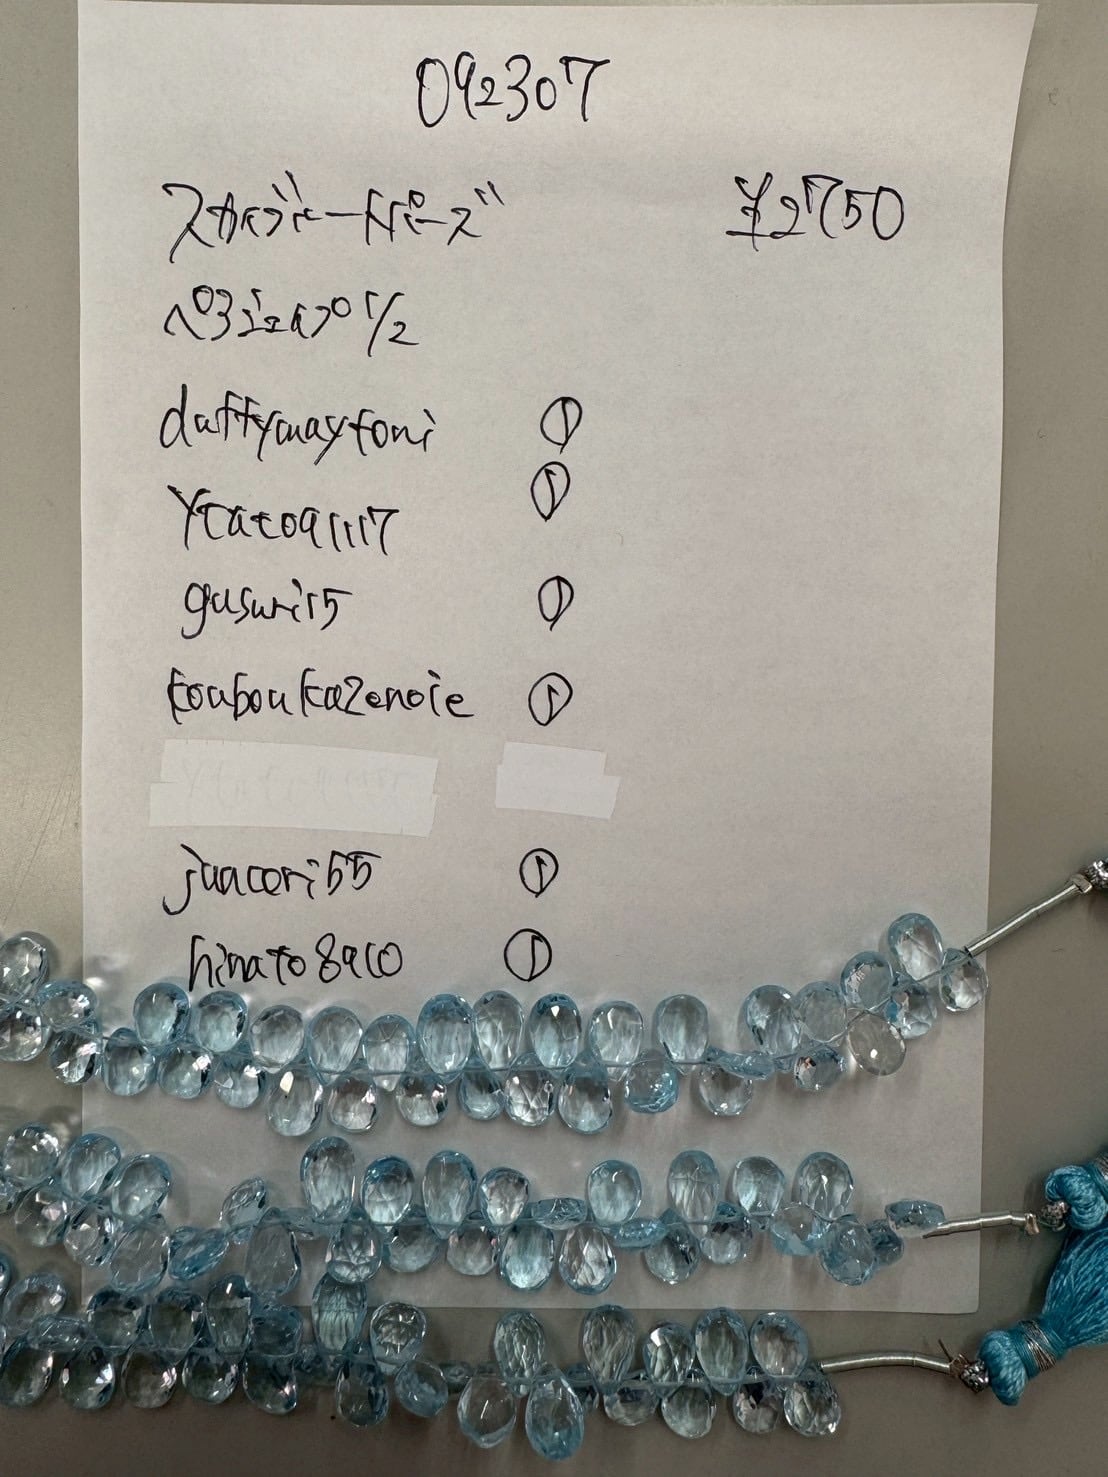 092307
スカイブルートパーズ ¥2750
ペアシェイプ 1/2
duffymayfoni ①
ytato91117 ①
gusuri15 ①
kouboukazenoie ①
juncori55 ①
hinato8910 ①